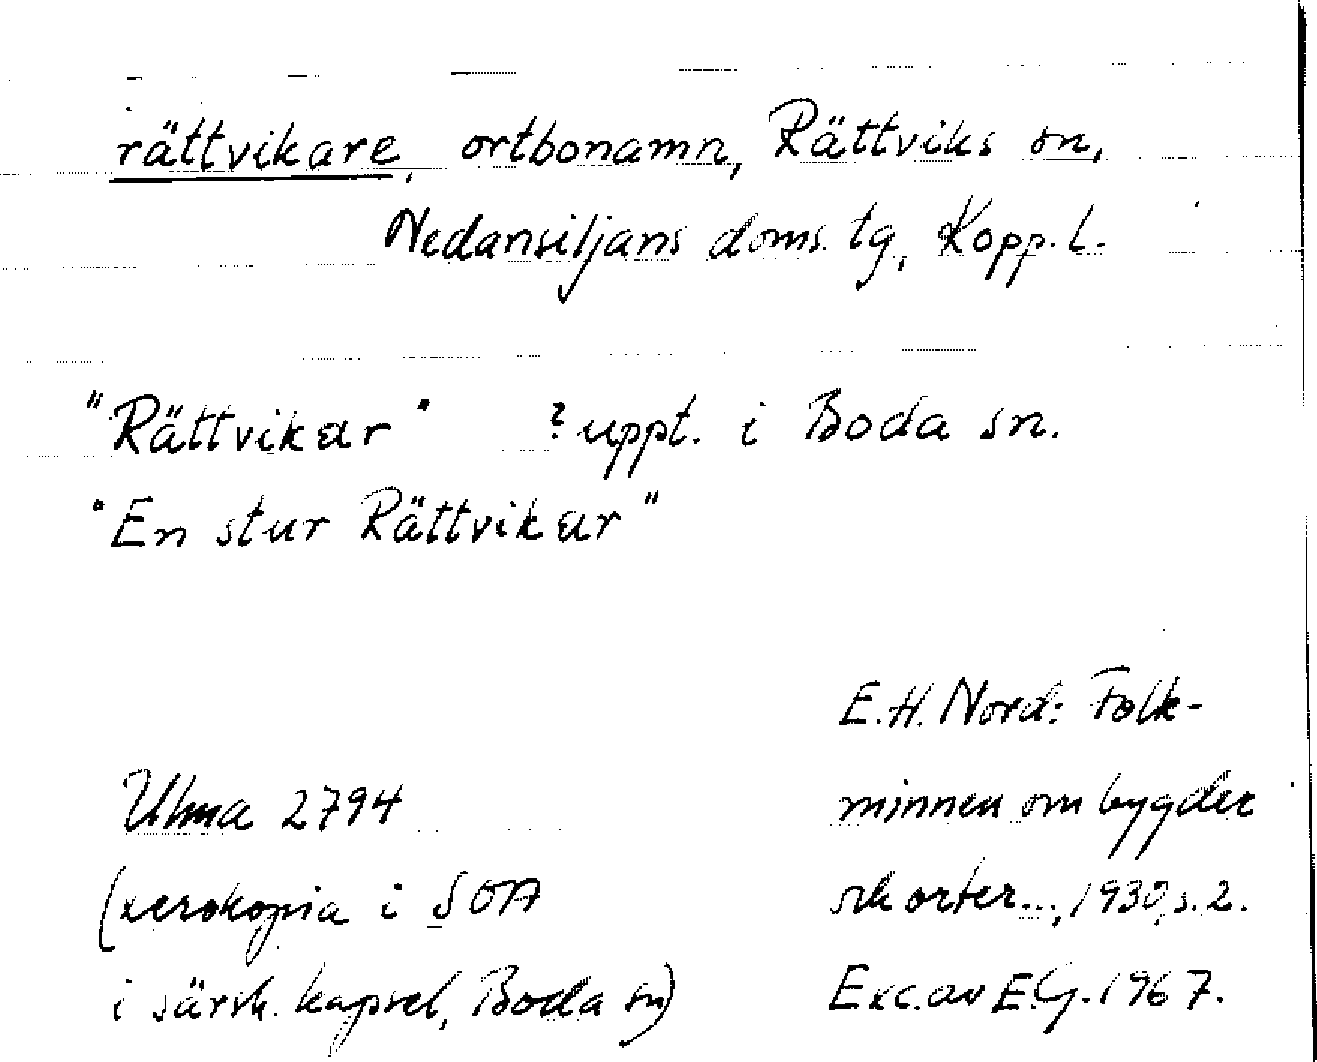 rättvikare, ortbonamn, Rättviks sn,
Nedansiljans doms. tg, Kopp. l.
"Rättvikar" ? uppt. i Boda sn.
"En stur Rättvikar"
E.H. Nord: Folk-
minnen om bygder
och orter..., 1930, s. 2.
Exc. av E.G. 1967.
Ulma 2794
(xerokopia i SOA
i särsk. kapsel, Boda sn)